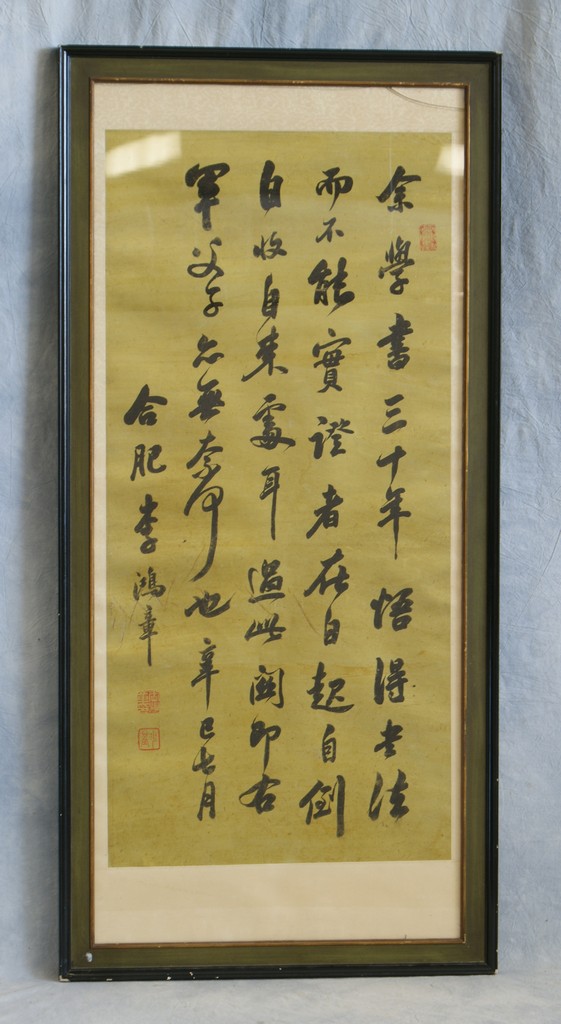 余學書三十年悟得書法
而不能實證者在自起自倒
自收自束處耳過此關即右
軍父子亦無奈何也辛巳七月
合肥李鴻章